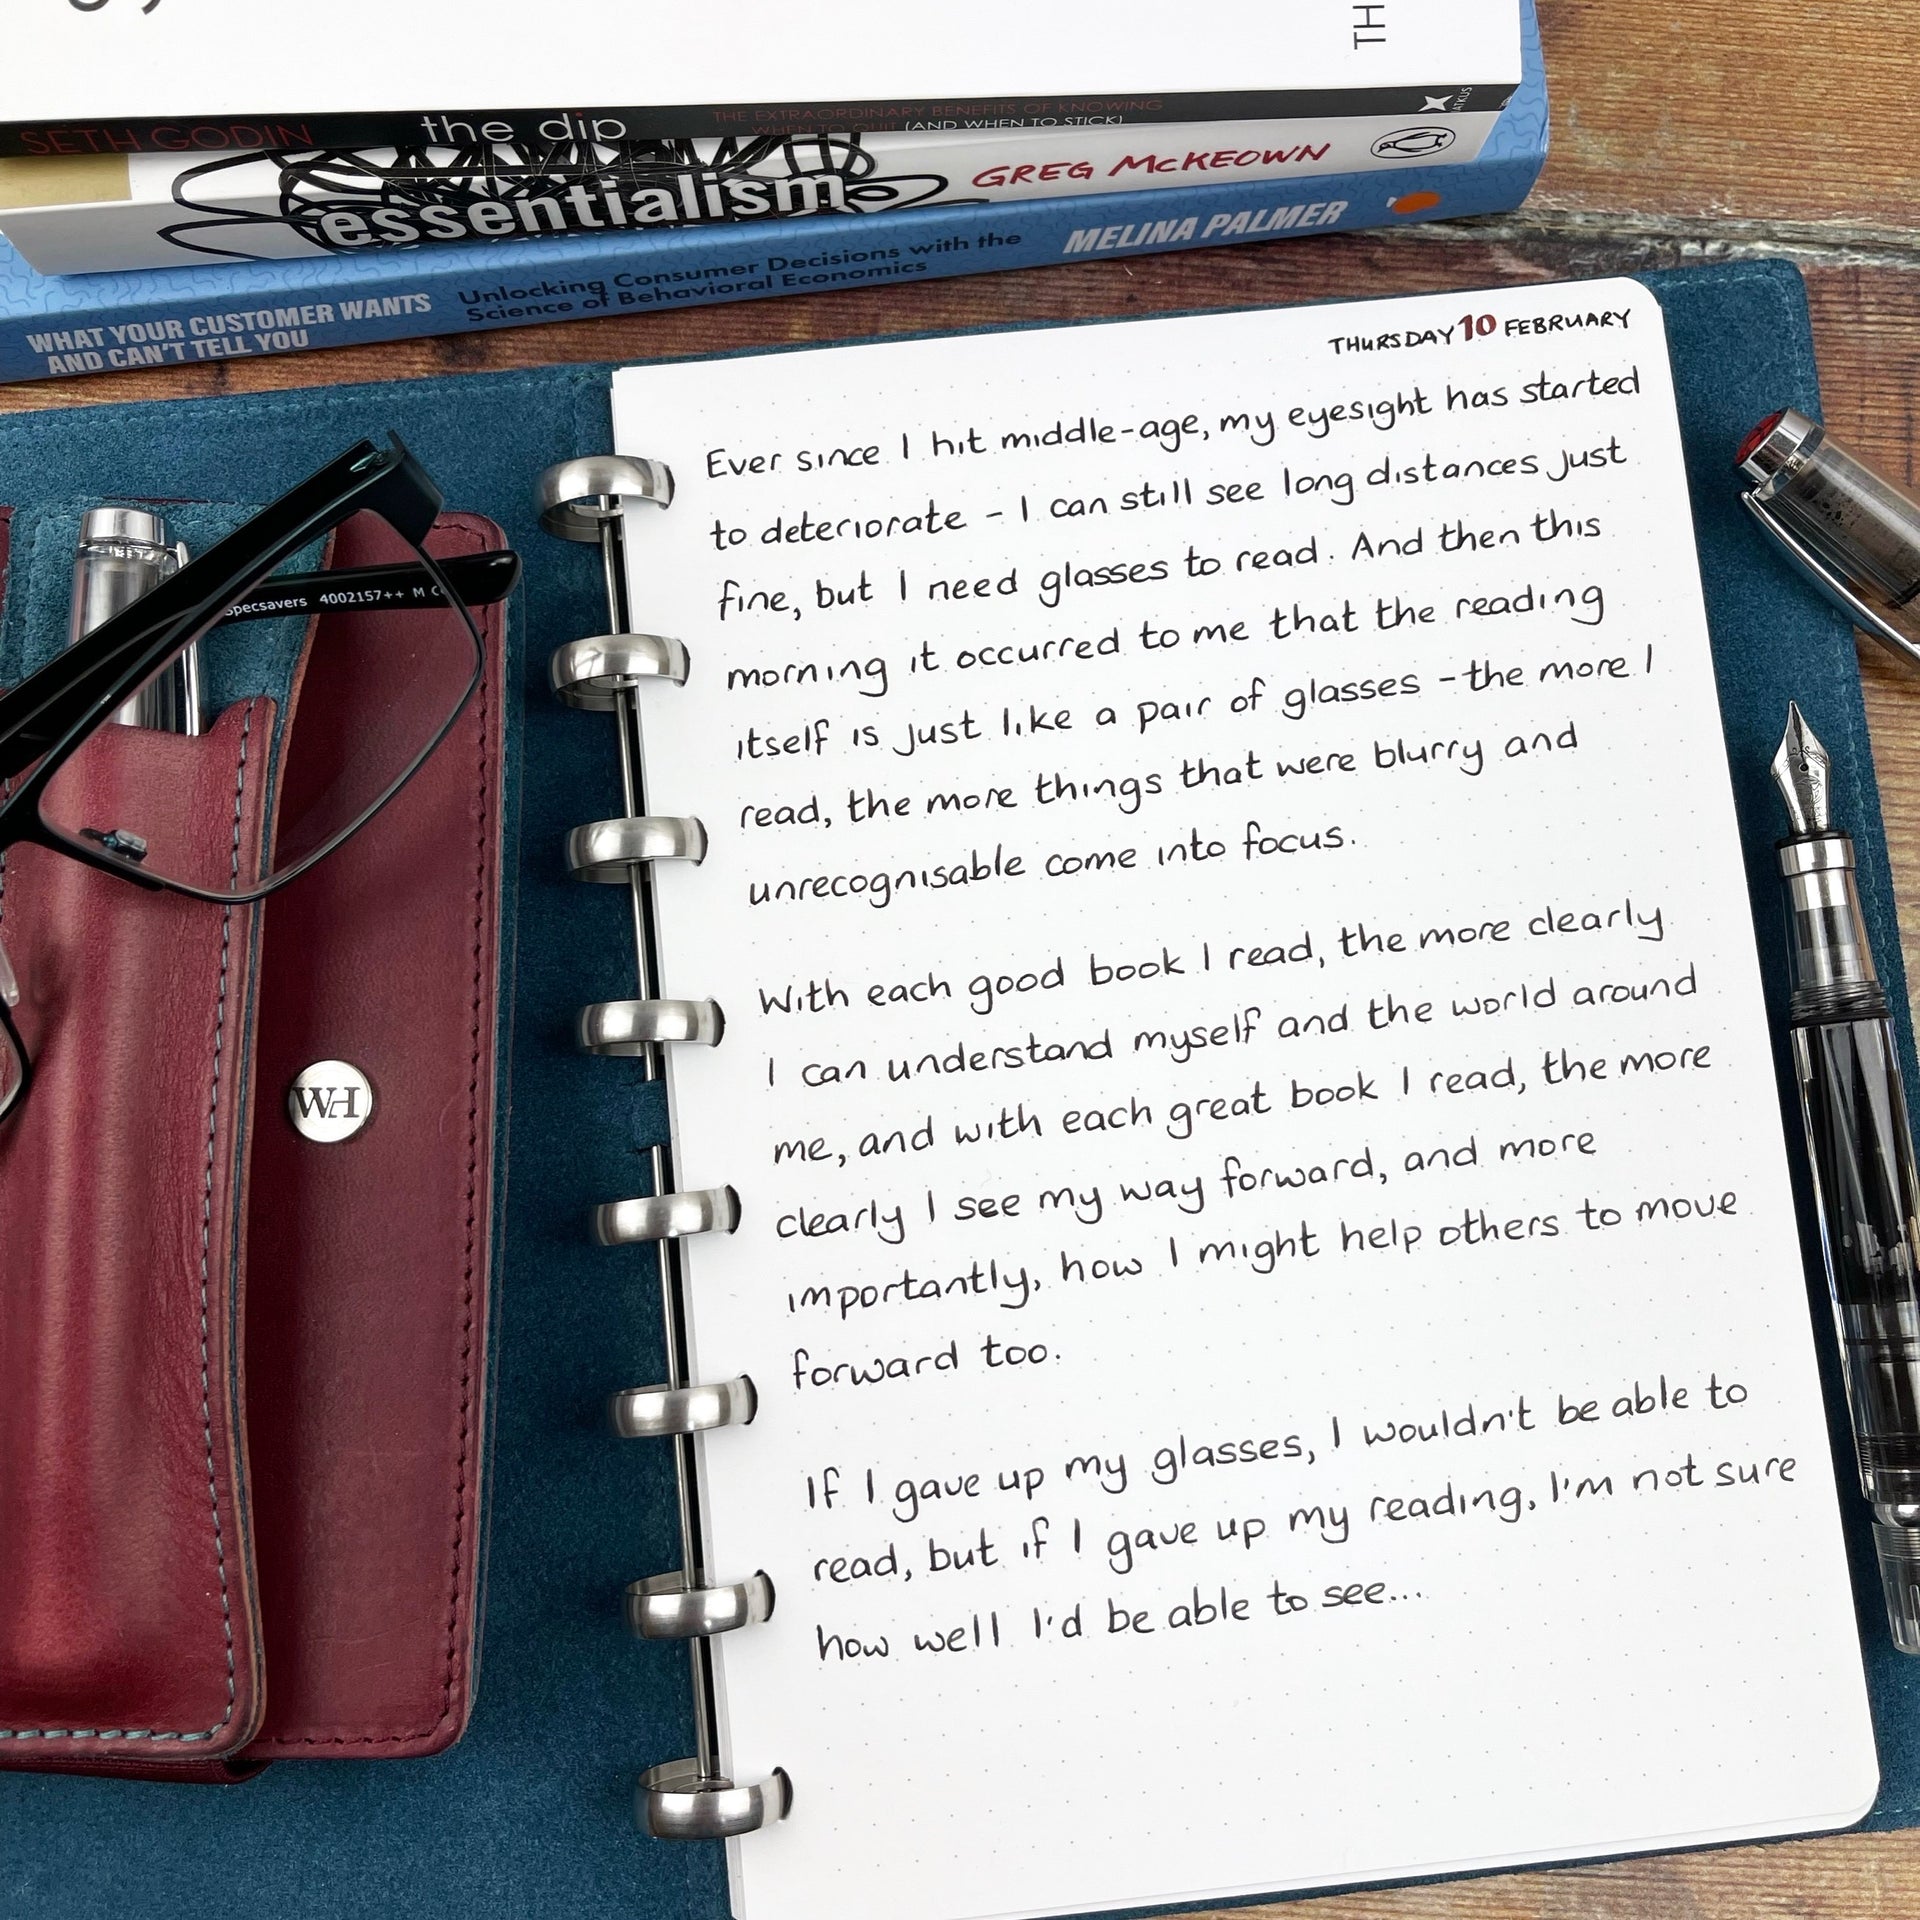 TH
SETH GODIN the dip THE EXTRAORDINARY BENEFITS OF KNOWING
WHEN TO QUIT (AND WHEN TO STICK)
essentialism GREG McKEOWN
WHAT YOUR CUSTOMER WANTS
AND CAN'T TELL YOU
Unlocking Consumer Decisions with the
Science of Behavioral Economics
MELINA PALMER
THURSDAY 10 FEBRUARY
Ever since I hit middle-age, my eyesight has started
to deteriorate - I can still see long distances just
fine, but I need glasses to read. And then this
morning it occurred to me that the reading
itself is just like a pair of glasses - the more I
read, the more things that were blurry and
unrecognisable come into focus.
With each good book I read, the more clearly
I can understand myself and the world around
me, and with each great book I read, the more
clearly I see my way forward, and more
importantly, how I might help others to move
forward too.
If I gave up my glasses, I wouldn't be able to
read, but if I gave up my reading, I'm not sure
how well I'd be able to see...
Specsavers 4002157++ M
WH